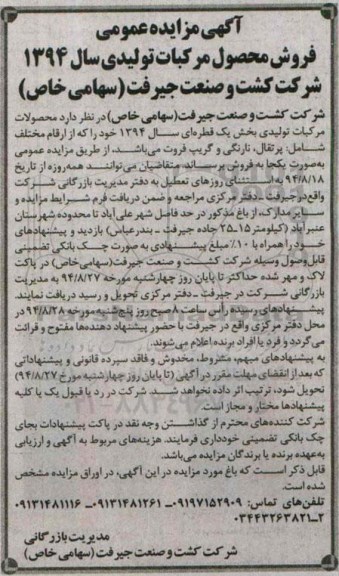 آگهی مزایده عمومی
فروش محصول مرکبات تولیدی سال ۱۳۹۴
شرکت کشت و صنعت جیرفت (سهامی خاص)
شرکت کشت و صنعت جیرفت (سهامی خاص) در نظر دارد محصولات
مرکبات تولیدی بخش یک قطره‌ای سال ۱۳۹۴ خود را که از ارقام مختلف
شامل: پرتقال، نارنگی و گریپ فروت می‌باشد، از طریق مزایده عمومی
به‌صورت یکجا به فروش برساند. متقاضیان می‌توانند همه‌روزه از تاریخ
۹۴/۸/۱۸ به استثنای روزهای تعطیل به دفتر مدیریت بازرگانی شرکت
واقع در جیرفت - دفتر مرکزی مراجعه و ضمن دریافت فرم شرایط مزایده و
سایر مدارک، از باغ مذکور در حد فاصل شهر علی‌آباد تا محدوده شهرستان
عنبرآباد (کیلومتر ۱۵-۲۵ جاده جیرفت - بندرعباس) بازدید و پیشنهادهای
خود را همراه با ۱۰٪ مبلغ پیشنهادی به صورت چک بانکی تضمینی
قابل وصول وسیله شرکت کشت و صنعت جیرفت (سهامی خاص) در پاکت
لاک و مهر شده حداکثر تا پایان روز چهارشنبه مورخه ۹۴/۸/۲۷ به مدیریت
بازرگانی شرکت در جیرفت - دفتر مرکزی تحویل و رسید دریافت نمایند.
پیشنهادهای رسیده رأس ساعت ۸ صبح روز پنج‌شنبه مورخه ۹۴/۸/۲۸ در
محل دفتر مرکزی واقع در جیرفت با حضور پیشنهاد دهنده‌ها مفتوح و قرائت
می‌گردد و فرد یا افراد برنده اعلام می‌شوند.
به پیشنهادهای مبهم، مشروط، مخدوش و فاقد سپرده قانونی و پیشنهاداتی
که بعد از انقضای مهلت مقرر در آگهی (تا پایان روز چهارشنبه مورخ ۹۴/۸/۲۷)
تحویل شود، ترتیب اثر داده نخواهد شد. شرکت در رد یا قبول یک یا کلیه
پیشنهادها مختار و مجاز است.
شرکت کننده‌های محترم از گذاشتن وجه نقد در پاکت پیشنهادات بجای
چک بانکی تضمینی خودداری فرمایند. هزینه‌های مربوط به آگهی و ارزیابی
به‌عهده برنده یا برندگان مزایده می‌باشد.
قابل ذکر است که باغ مورد مزایده در این آگهی، در اوراق مزایده مشخص
شده است.
تلفن‌های تماس: ۰۹۱۹۷۱۵۲۹۰۹ - ۰۹۱۳۱۴۸۱۲۶۱ - ۰۹۱۳۱۴۸۱۱۱۶
۰۳۴۴۳۲۶۳۸۲۱-۲
مدیریت بازرگانی
شرکت کشت و صنعت جیرفت (سهامی خاص)